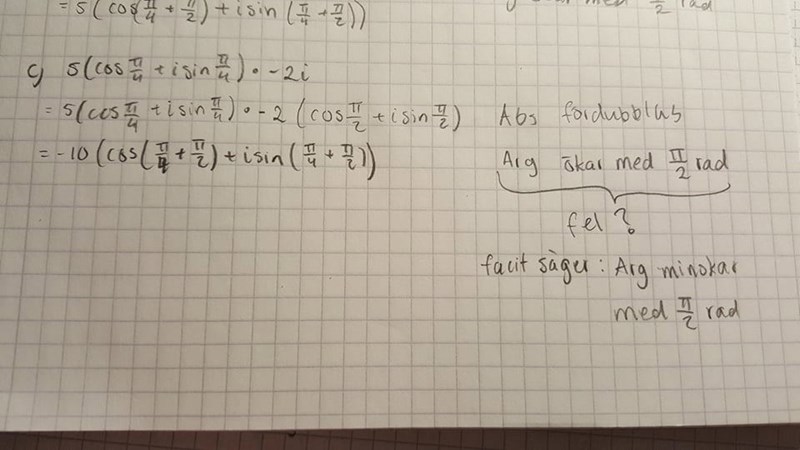 = 5(cos(π/4 + π/2) + i sin(π/4 + π/2))
med π/2 rad
c) 5(cos π/4 + i sin π/4) · -2i
= 5(cos π/4 + i sin π/4) · -2 (cos π/2 + i sin π/2)
Abs fördubblas
= -10 (cos(π/4 + π/2) + i sin(π/4 + π/2))
Arg ökar med π/2 rad
fel?
facit säger: Arg minskar
med π/2 rad